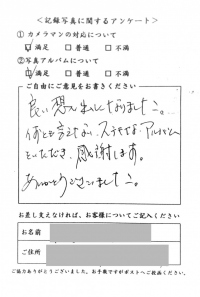 ＜記録写真に関するアンケート＞
① カメラマンの対応について
□ 満足 □ 普通 □ 不満
②写真アルバムについて
□ 満足 □ 普通 □ 不満
ご自由にご意見をお書きください
良い想い出になりました。
何とも言えない、ステキな、アルバム
をいただき、感謝します。
ありがとうございました。
お差し支えなければ、お客様についてご記入ください
お名前
ご住所
ご協力ありがとうございました。お手数ですがポストへご投函ください。